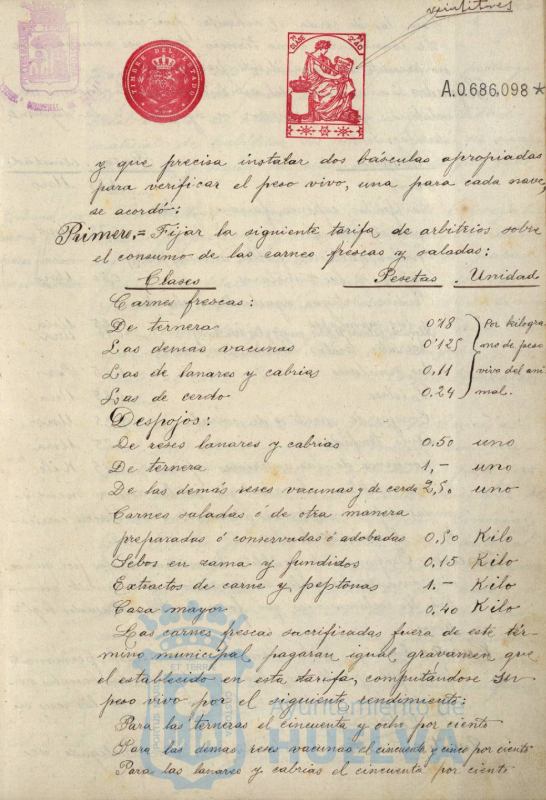 veintitres
TIMBRE DEL ESTADO
CLASE
A.0.686.098*
y que precisa instalar dos básculas apropiadas
para verificar el peso vivo, una para cada nave,
se acordó:
Primero.= Fijar la siguiente tarifa de arbitrios sobre
el consumo de las carnes frescas y saladas:
Clases Pesetas. Unidad
Carnes frescas:
De ternera 0'18 Por kilogra
Las demas vacunas 0'125 mo de peso
Las de lanares y cabrias 0.11 vivo del ani
Las de cerdo 0.24 mal.
Despojos:
De reses lanares y cabrias 0.50 uno
De ternera 1,- uno
De las demás reses vacunas y de cerda 2,50 uno
Carnes saladas ó de otra manera
preparadas ó conservadas ó adobadas 0,50 Kilo
Sebos en rama y fundidos 0,15 Kilo
Extractos de carne y peptonas 1.- Kilo
Caza mayor 0,40 Kilo
Las carnes frescas sacrificadas fuera de este tér-
mino municipal pagaran igual gravamen que
el establecido en esta tarifa, computándose su
peso vivo por el siguiente rendimiento:
Para las terneras el cincuenta y ocho por ciento
Para las demas reses vacunas el cincuenta y cinco por ciento
Para las lanares y cabrias el cincuenta por ciento
Ayuntamiento de
HUELVA